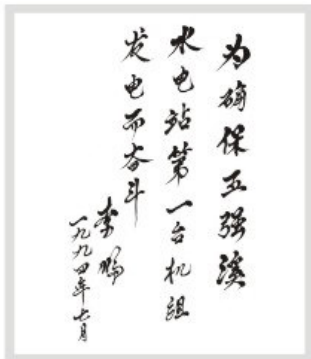 为确保五强溪
水电站第一台机组
发电而奋斗
李鹏
一九九四年七月